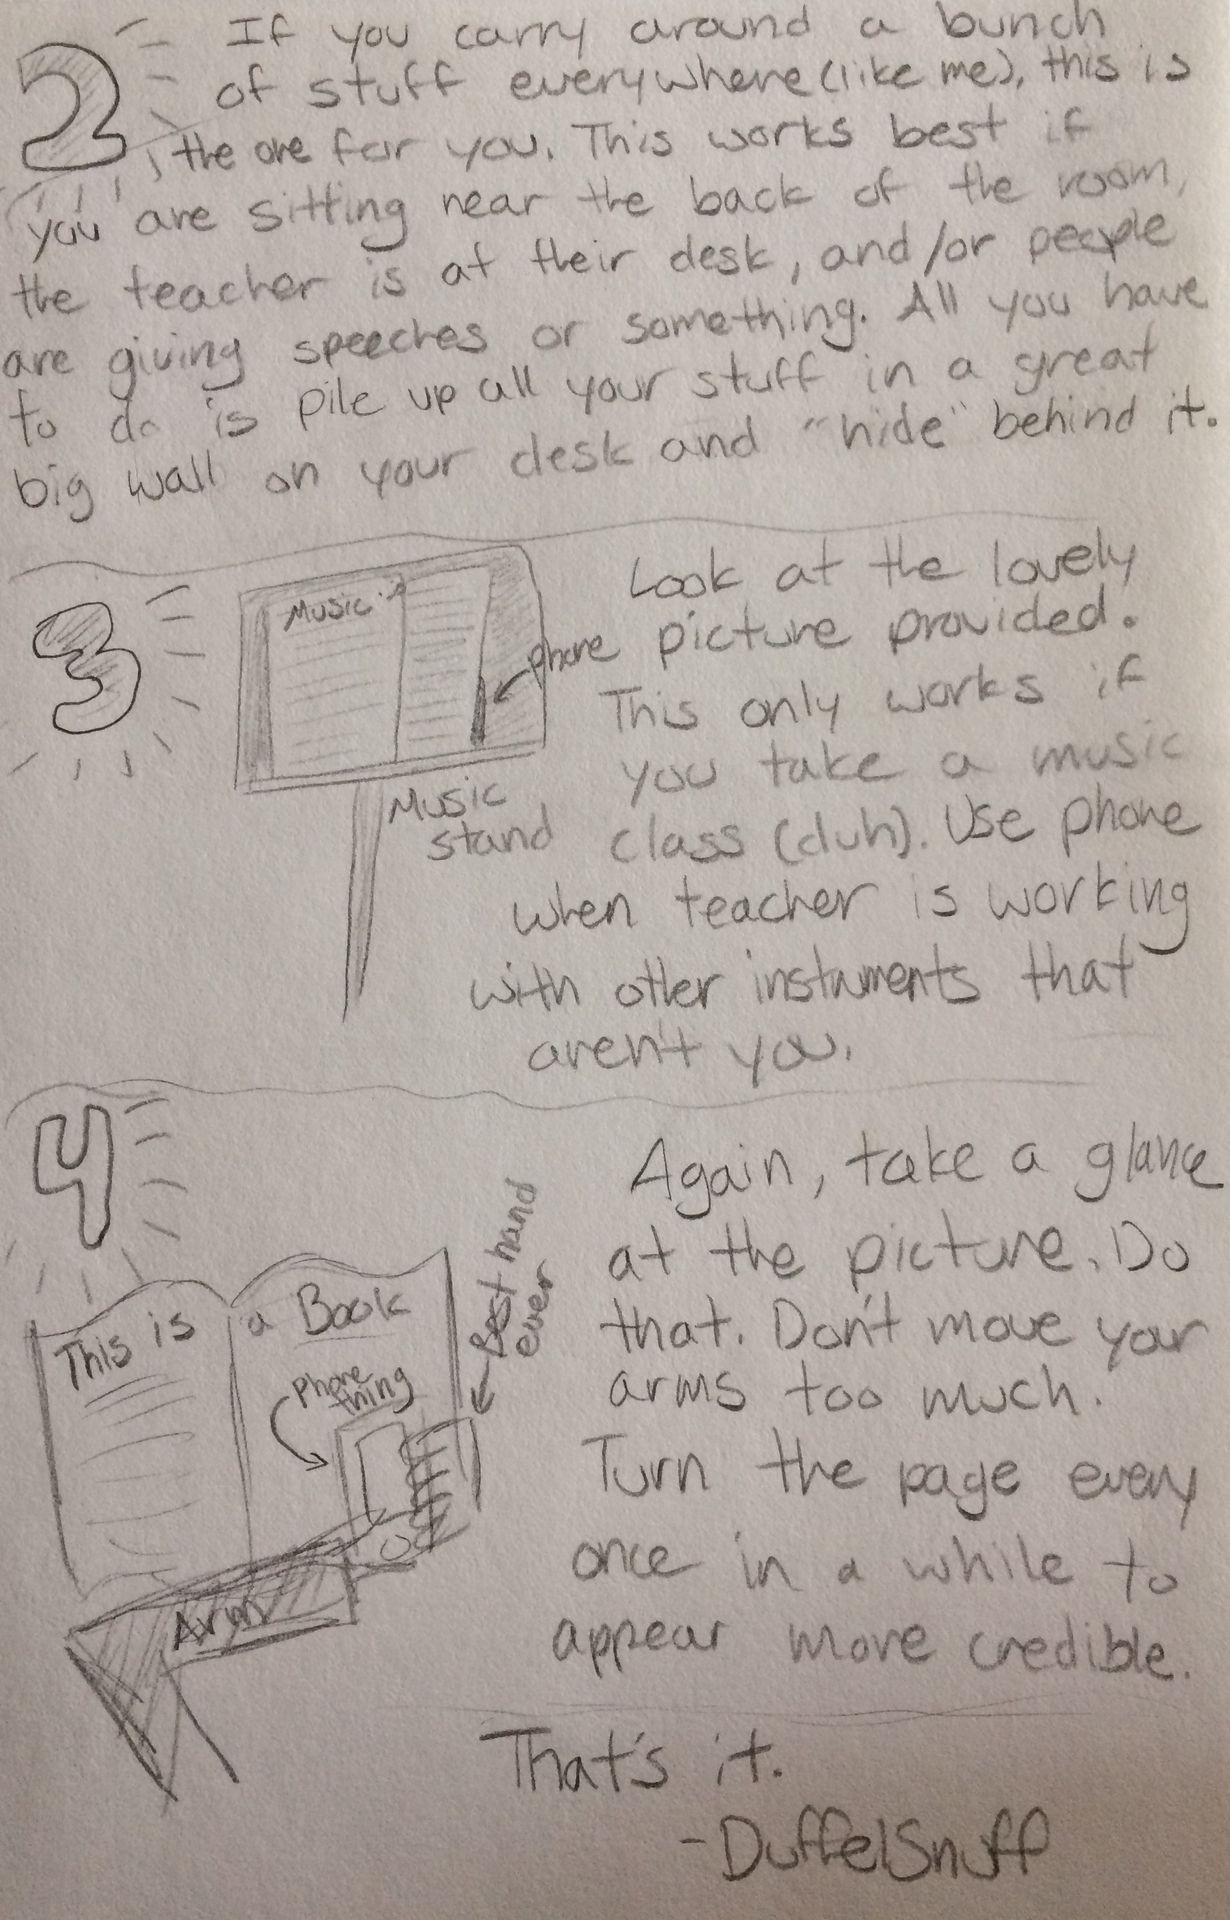 2
If you carry around a bunch
of stuff everywhere (like me), this is
the one for you. This works best if
you are sitting near the back of the room,
the teacher is at their desk, and/or people
are giving speeches or something. All you have
to do is pile up all your stuff in a great
big wall on your desk and "hide" behind it.
3
Music
phone
Music
stand
Look at the lovely
picture provided.
This only works if
you take a music
class (duh). Use phone
when teacher is working
with other instruments that
aren't you.
4
This is a Book
phone
thing
Best hand
ever
Arm
Again, take a glance
at the picture. Do
that. Don't move your
arms too much.
Turn the page every
once in a while to
appear more credible.
That's it.
-DuffelSnuff